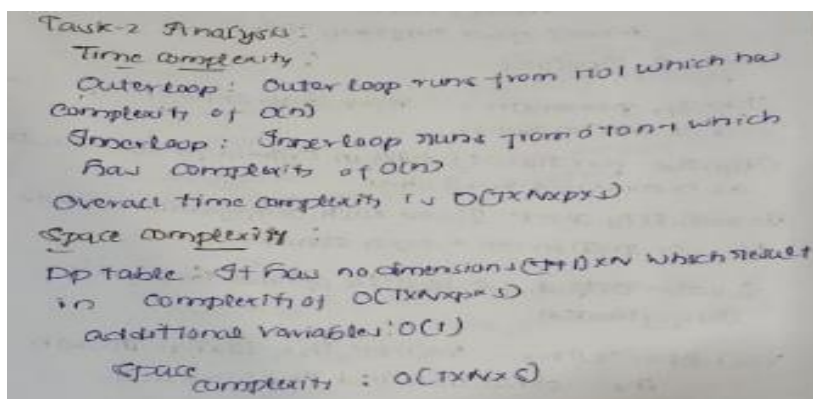 Task-2 Analysis:
Time complexity:
Outerloop: Outer loop runs from which has
complexity of O(n)
Innerloop: Innerloop runs from 0 to n-1 which
has complexity of O(n)
Overall time complexity is O(TxNxpxs)
Space complexity:
Dp table: It has no dimensions (T+1)xN which result
in complexity of O(TxNxpxs)
additional variables: O(1)
Space complexity: O(TxNxS)